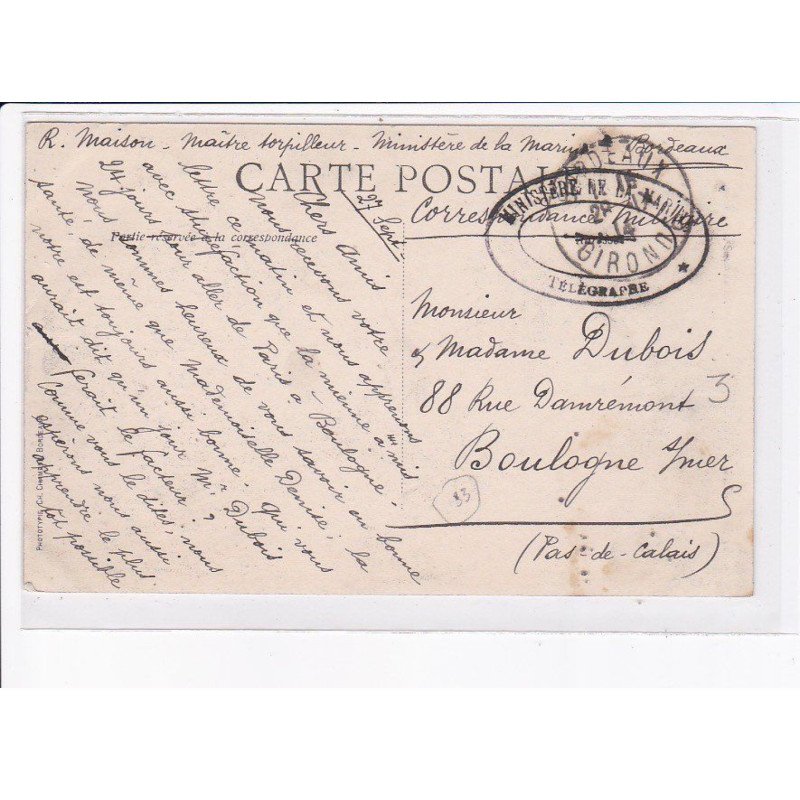 R. Maison - Maître torpilleur - Ministère de la Marine - Bordeaux
CARTE POSTALE
Correspondance Militaire
Partie réservée à la correspondance
BORDEAUX
GIRONDE
14
MINISTERE DE LA MARINE
TÉLÉGRAPHE
27 Sept.
Chers Amis
nous recevons votre
lettre ce matin et nous apprenons
avec stupéfaction que la mienne a mis
24 jours pour aller de Paris à Boulogne.
nous sommes heureux de vous savoir en bonne
santé, de même que Mademoiselle Denise; la
notre est toujours aussi bonne. Qui vous
aurait dit qu'un jour Mr Dubois
ferait le facteur ?
Comme vous le dites, nous
espérons nous aussi
apprendre le plus
tôt possible
Monsieur
& Madame Dubois
88 Rue Damrémont
Boulogne s/mer
(Pas-de-Calais)
3
33
PHOTOTYPIE CH. CHAMBON BORDEAUX